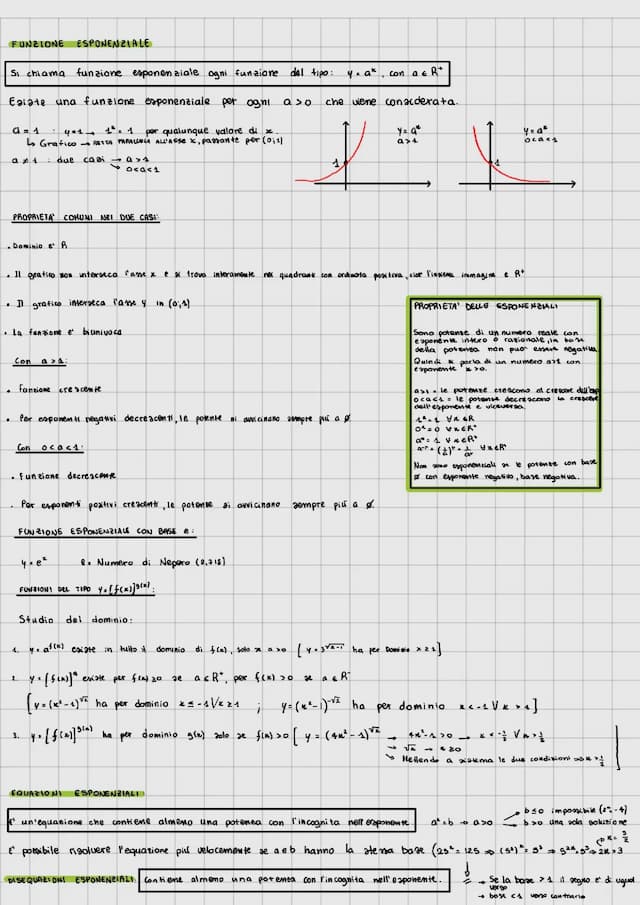 FUNZIONE ESPONENZIALE
Si chiama funzione esponenziale ogni funzione del tipo: y = aˣ, con a ∈ R⁺
Esiste una funzione esponenziale per ogni a>0 che viene considerata.
a = 1 : y=1 → 1ˣ = 1 per qualunque valore di x.
↳ Grafico → RETTA PARALLELA ALL'ASSE X, PASSANTE PER (0;1)
a ≠ 1 : due casi → a>1
→ 0<a<1
y=aˣ
a>1
1
y=aˣ
0<a<1
1
PROPRIETA' COMUNI NEI DUE CASI:
• Dominio e' R
• Il grafico non interseca l'asse x e si trova interamente nel quadrante con ordinata positiva, l'insieme immagine e R⁺
• Il grafico interseca l'asse y in (0;1)
• La funzione e' biunivoca
Con a>1:
• Funzione crescente
• Per esponenti negativi decrescenti, le potenze si avvicinano sempre più a 0
Con 0<a<1:
• Funzione decrescente
. Per esponenti positivi crescenti, le potenze si avvicinano sempre più a 0.
PROPRIETA' DELLE ESPONENZIALI
Sono potenze di un numero reale con
esponente intero o razionale, la base
della potenza non puo' essere negativa
Quindi si parla di un numero a≥1 con
esponente x>0.
a>1 = le potenze crescono al crescere dell'esp
0<a<1 = le potenze decrescono al crescere
dell'esponente e viceversa.
1ˣ=1 ∀x∈R
0ˣ=0 ∀x∈R⁺
a⁰=1
Non sono esponenziali le potenze con base
0 con esponente negativo, base negativa.
FUNZIONE ESPONENZIALE CON BASE e:
y = eˣ e = Numero di Nepero (2,718)
FUNZIONI DEL TIPO y=[f(x)]^g(x):
Studio del dominio:
1. y = a^f(x) esiste in tutto il dominio di f(x), solo se a>0 [ y = 3^√(x-1) ha per Dominio x≥1]
2. y = [f(x)]^a esiste per f(x)≥0 se a∈R⁺, per f(x)>0 se a∈R⁻
[y = (x²-1)^√2 ha per dominio x≤-1 ∨ x≥1 ; y = (x²-1)^-√2 ha per dominio x<-1 ∨ x>1]
3. y = [f(x)]^g(x) ha per dominio g(x) solo se f(x)>0 [ y = (4x²-1)^√x → 4x²-1>0 → x<-½ ∨ x>½
→ √x → x≥0
↳ Mettendo a sistema le due condizioni => x>½ ]
EQUAZIONI ESPONENZIALI
E' un'equazione che contiene almeno una potenza con l'incognita nell'esponente. aˣ=b → a>0 b≤0 impossibile (2ˣ=-4)
b>0 una sola soluzione
E' possibile risolvere l'equazione più velocemente se a e b hanno la stessa base (25ˣ = 125 => (5²)ˣ = 5³ => 5²ˣ=5³ => 2x=3
x=3/2
DISEQUAZIONI ESPONENZIALI: Contiene almeno una potenza con l'incognita nell'esponente. → Se la base >1 il segno e' di ugual
verso
→ base <1 verso contrario